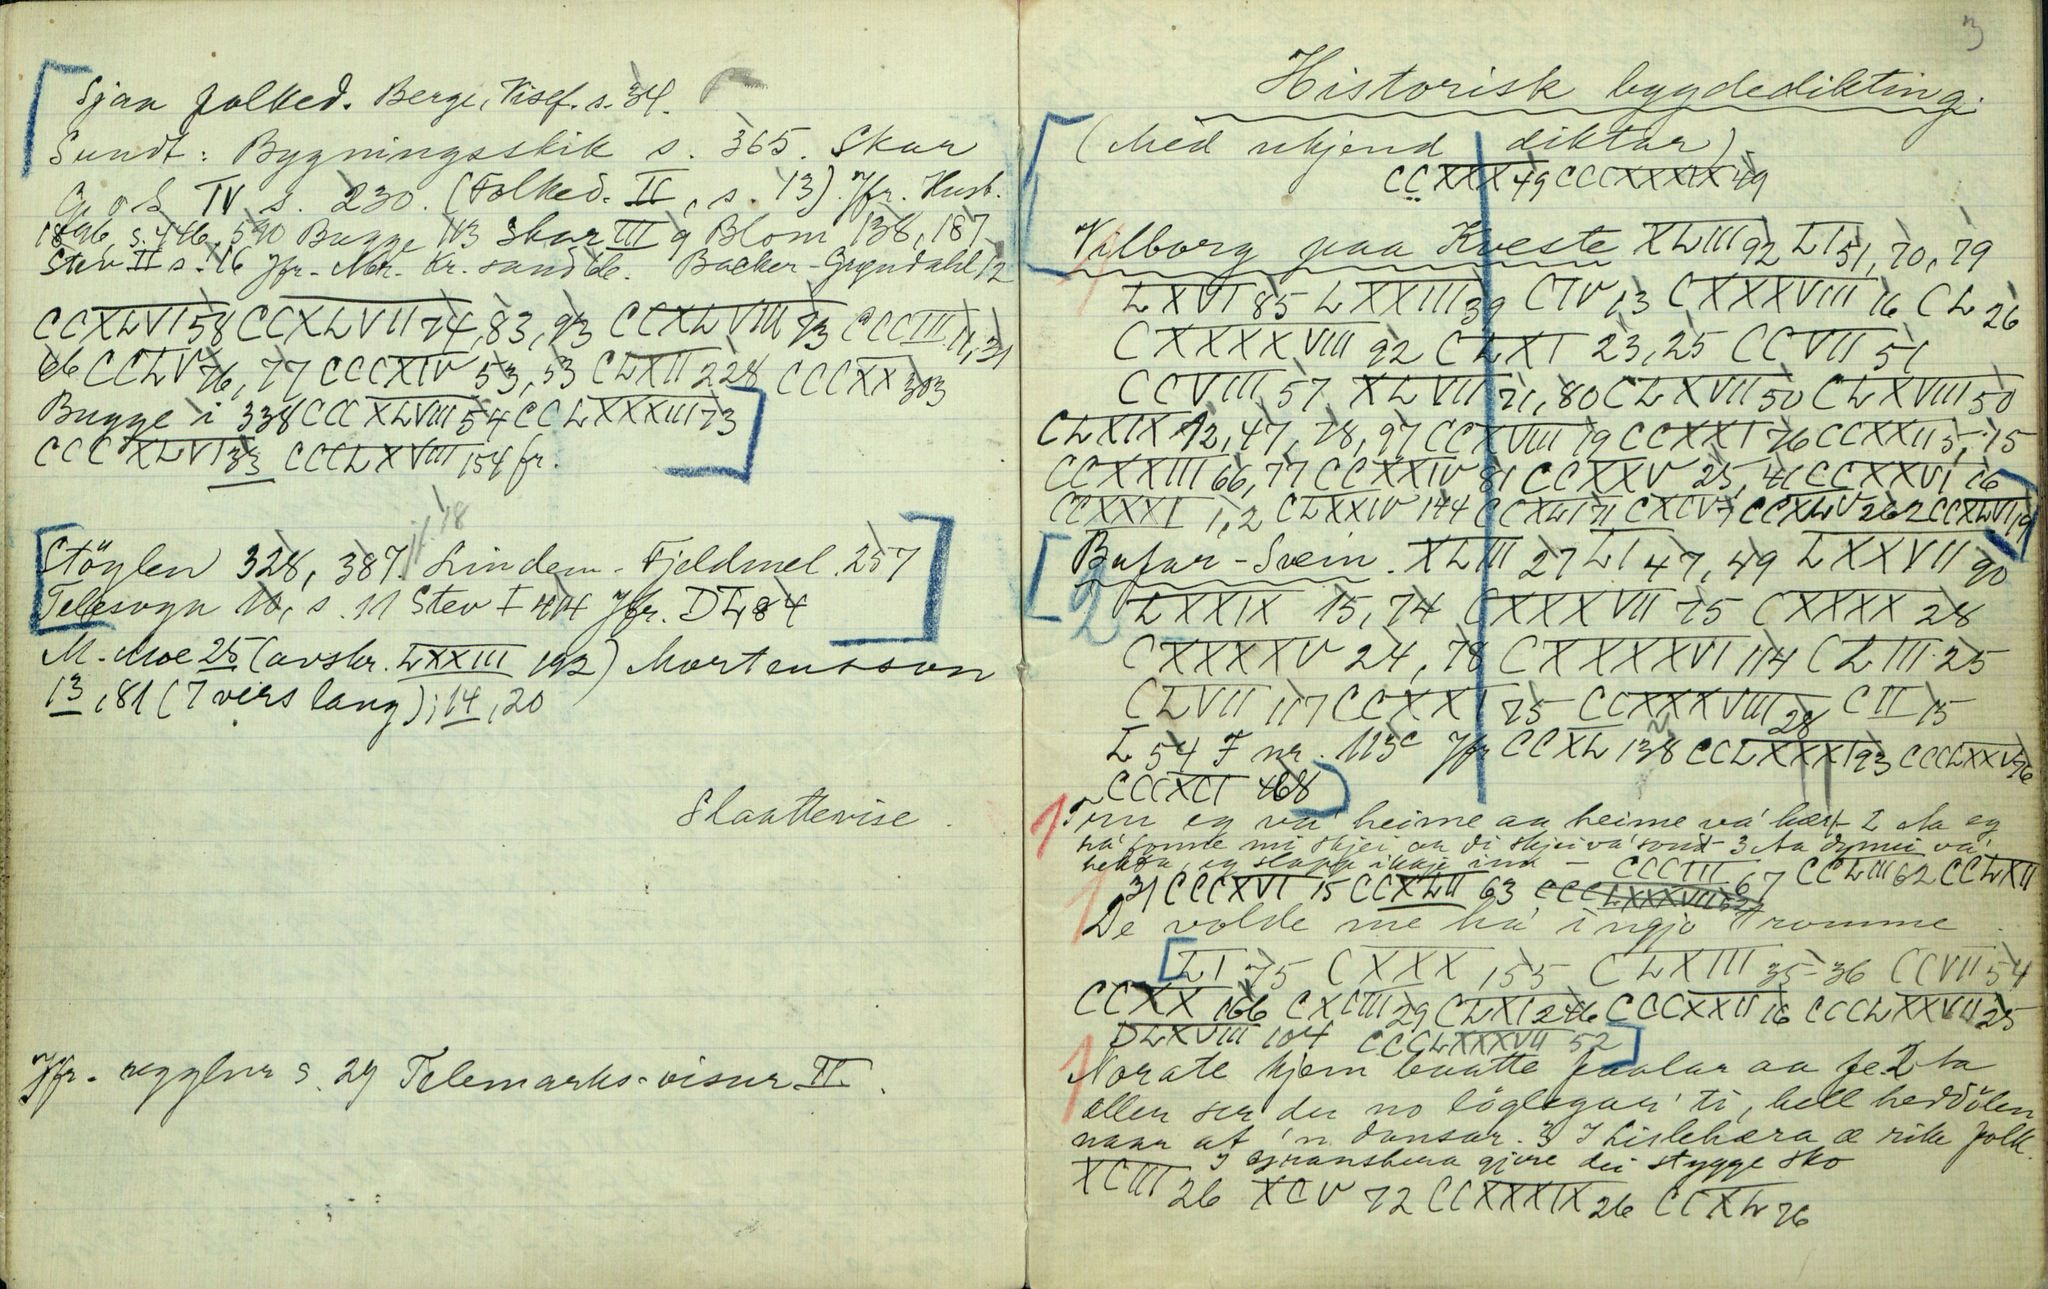 Sjaa folked. Berge, Visef. s. 34.
Sundt: Bygningsskik s. 365. Skar
G. o S. IV s. 230. (Folked. II, s. 13) Jfr. Husb.
1896, s. 446, 590 Bugge 113 Skar III 9 Blom 138, 187
Stev II s. 16 Jfr. Nor. Kr.sand Backer-Grøndahl 12
CCXLVI 58 CCXLVII 74, 83, 93 CCXLVIII 93 CCCIII 11, 31
CCLV 76, 77 CCCXIV 53, 53 CLXII 228 CCCXX 303
Bugge i 338 CCCXLVIII 54 CCLXXXIII 73
CCCXLVI 33 CCCLXVIII 154 fr.
Støylen 328, 387. Lindem. Fjeldmel. 257
Telesogn 10, s. 11 Stev I 44 Jfr. DL 84
M. Moe 25 (avskr. LXXIII 192) Mortensson
13, 81 (7 vers lang); 14, 20
Slaattevise.
Jfr. regglur s. 29 Telemarks-visur II.
3
Historisk bygdedikting.
(Med ukjend diktar)
CCXXX 49 CCCXXXIX 49
1 Vilborg paa Kveste XLIII 92 LI 51, 70, 79
LXVI 85 LXXIII 39 CIV 13 CXXXVIII 16 CL 26
CXXXXVIII 92 CLXI 23, 25 CCVII 51
CCVIII 57 XLVII 71, 80 CLXVII 50 CLXVIII 50
CLXIX 12, 47, 78, 97 CCXVIII 19 CCXXI 76 CCXXII 5, 15
CCXXIII 66, 77 CCXXIV 81 CCXXV 25, 41 CCXXVI 16
CCXXXI 1, 2 CLXXIV 144 CCXLI 71 CXCV 7 CCXLV 262 CCXLVI 19
2 Bufar-Svein. XLIII 27 LI 47, 49 LXXVII 90
LXXIX 15, 74 CXXXVII 75 CXXXX 28
CXXXXV 24, 78 CXXXXVI 114 CLIII 25
CLVII 117 CCXXI 75 CCXXXVIII 28 CII 15
L 54 F nr. 113c Jfr CCXL 138 CCLXXXI 93 CCCLXXV 76
CCCXCI 468
1 Fyrr eg va' heime aa heime va' 2 Aa eg
ha' somle mi skjei aa di skjei va' 3 Aa va'
eg slapp ikkje inn – CCCIII 67 CCLIII 62 CCLXII
31 CCCXVI 15 CCXLII 63 CCCLXXXVII 52
1 De volde me ha' i ngjo Tromme
LI 75 CXXX 155 CLXIII 35-36 CCVII 54
CCXX 166 CXCIII 29 CLXI 246 CCCXXII 16 CCCLXXVII 25
DLXVIII 104 CCCLXXXVII 52
1 Norate kjem baatte paalar aa fe. 2 Aa
aller ser du no löglegar' ti, hell heddölen
naar at 'n dansar. 3 I Lislehæra æ rike folk.
I gjere dei stygge sko
XCIII 26 XCV 72 CCXXXIX 26 CCXL 76